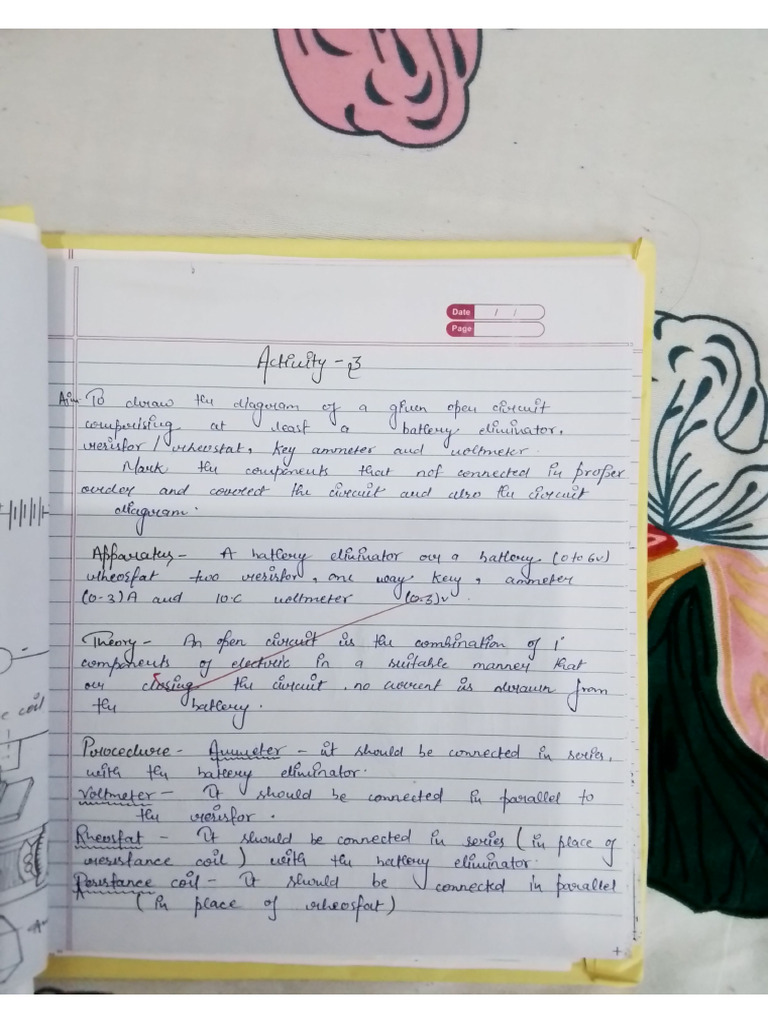 Date / /
Page
Activity - 3
Aim- To draw the diagram of a given open circuit
comprising at least a battery eliminator,
resistor / rheostat, key ammeter and voltmeter.
Mark the components that not connected in proper
order and correct the circuit and also the circuit
diagram.
Apparatus - A battery eliminator or a battery (0 to 6v)
rheostat two resistor, one way key, ammeter
(0-3)A and 10.C voltmeter (0.3)v.
Theory - An open circuit is the combination of
components of electric in a suitable manner that
our closing the circuit, no current is drawn from
the battery.
Procedure - Ammeter - it should be connected in series,
with the battery eliminator.
Voltmeter - It should be connected in parallel to
the resistor.
Rheostat - It should be connected in series (in place of
resistance coil) with the battery eliminator.
Resistance coil - It should be connected in parallel
(in place of rheostat)
coil